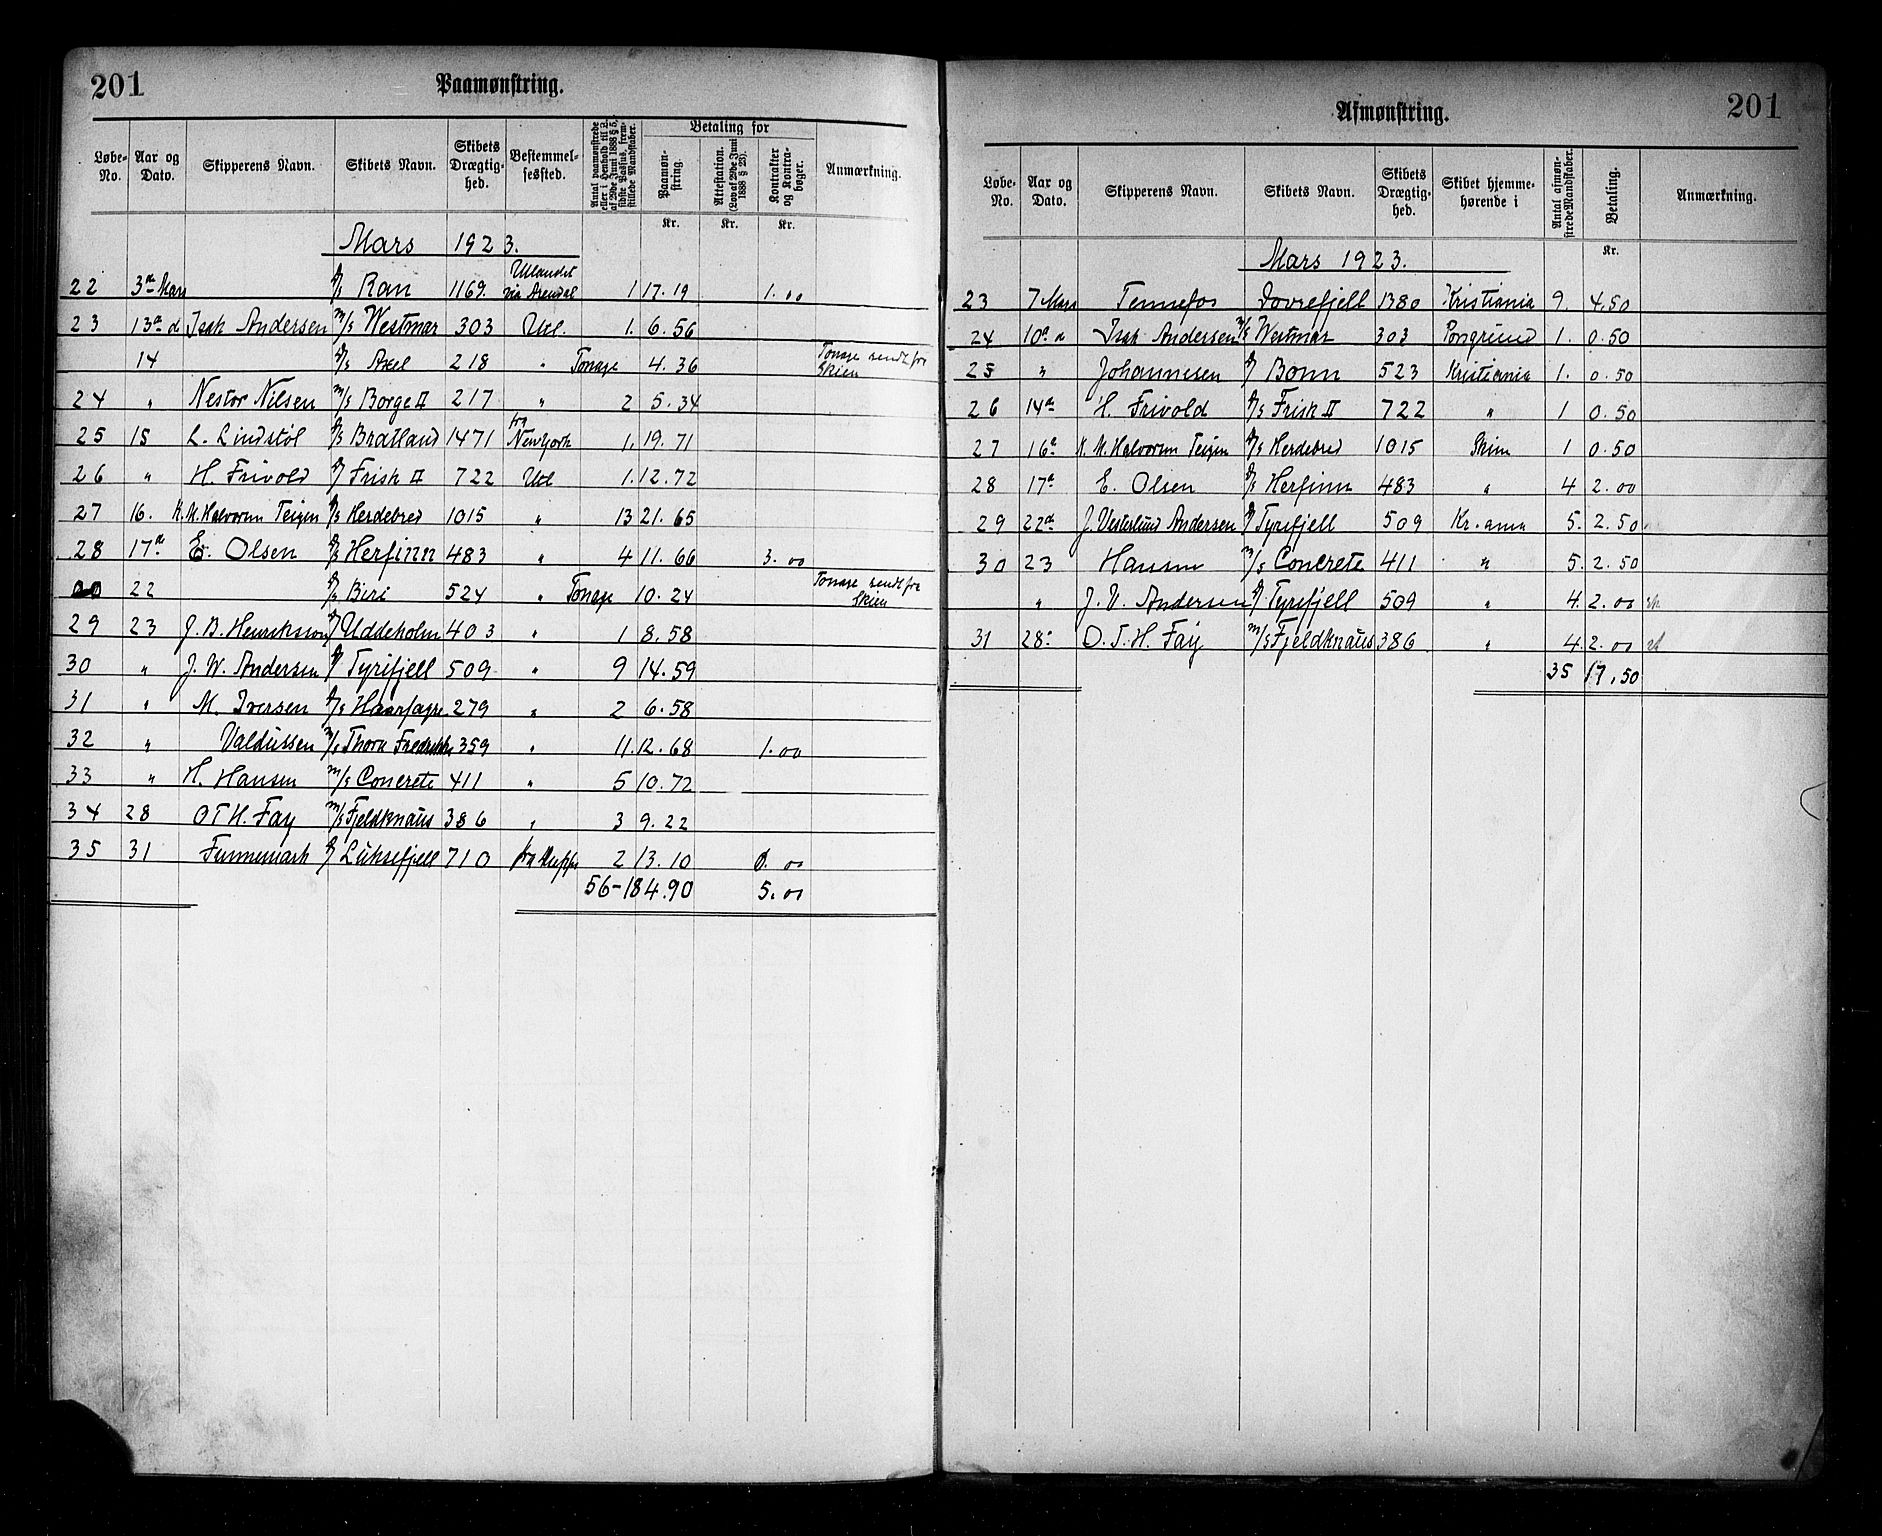 201
Paamønstring.
Løbe-No. Aar og Dato. Skipperens Navn. Skibets Navn. Skibets Drægtighed. Bestemmelsessted. Antal paamønstrede eller i Henhold til L. af 29de Juni 1888 § 5, sidste Passus, fremstillede Mandskaber. Betaling for Paamønstring. Attestation. (Lov af 29de Juni 1888 § 23). Kontrakter og Kontrabøger. Anmærkning.
Kr. Kr. Kr.
Mars 1923.
22 3die Mars S/S Ran 1169. Utlandet via Arendal 1 17.19 1.00
23 13de d Isak Andersen M/S Westmar 303 Utl. 1. 6.56
14 S/S Axel 218 " Tonage 4.36 Tonage sendt fra Skien
24 " Nestor Nilsen M/S Borge II 217 " 2 5.34
25 15 L. Lindstøl S/S Bratland 1471 fra Newyork 1. 19.71
26 " H. Frivold S/S Frisk II 722 Utl 1. 12.72
27 16. K. M. Halvorsen Teigen S/S Herdebred 1015 " 13 21.65
28 17de E. Olsen S/S Herfinn 483 " 4 11.66 3.00
22 S/S Biri 524 " Tonage 10.24 Tonage sendt fra Skien
29 23 J. B. Henrikson S/S Uddeholm 403 " 1 8.58
30 " J. W. Andersen S/S Tyrifjell 509 " 9 14.59
31 " M. Iversen S/S Haarfagre 279 " 2 6.58
32 " Valdussen M/S Thora Fredrikke 359 " 11. 12.68 1.00
33 " H. Hansen M/S Concrete 411 " 5 10.72
34 28 O T H. Fay M/S Fjeldknaus 386 " 3 9.22
35 31 Funnemark S/S Luksefjell 710 2 13.10 0.00
56 - 184.90 5.00
201
Afmønstring.
Løbe-No. Aar og Dato. Skipperens Navn. Skibets Navn. Skibets Drægtighed. Skibet hjemmehørende i Antal afmønstrede Mandskaber. Betaling. Anmærkning.
Kr.
Mars 1923.
23 7 Mars Tennefos Dovrefjell 1380 Kristiania 9. 4.50
24 10de d Isak Andersen M/S Westmar 303 Porsgrund 1. 0.50
25 " Johannesen S/S Bonn 523 Kristiania 1. 0.50
26 14de H. Frivold S/S Frisk II 722 " 1 0.50
27 16de K. M. Halvorsen Teigen S/S Herdebred 1015 Skien 1 0.50
28 17de E. Olsen S/S Herfinn 483 " 4 2.00
29 22de J. Vesterlund Andersen S/S Tyrifjell 509 Kr.ania 5. 2.50
30 23 Hansen M/S Concrete 411 " 5. 2.50
" J. V. Andersen S/S Tyrifjell 509 " 4. 2.00
31 28de O. T. H. Fay M/S Fjeldknaus 386 " 4. 2.00
35 17.50